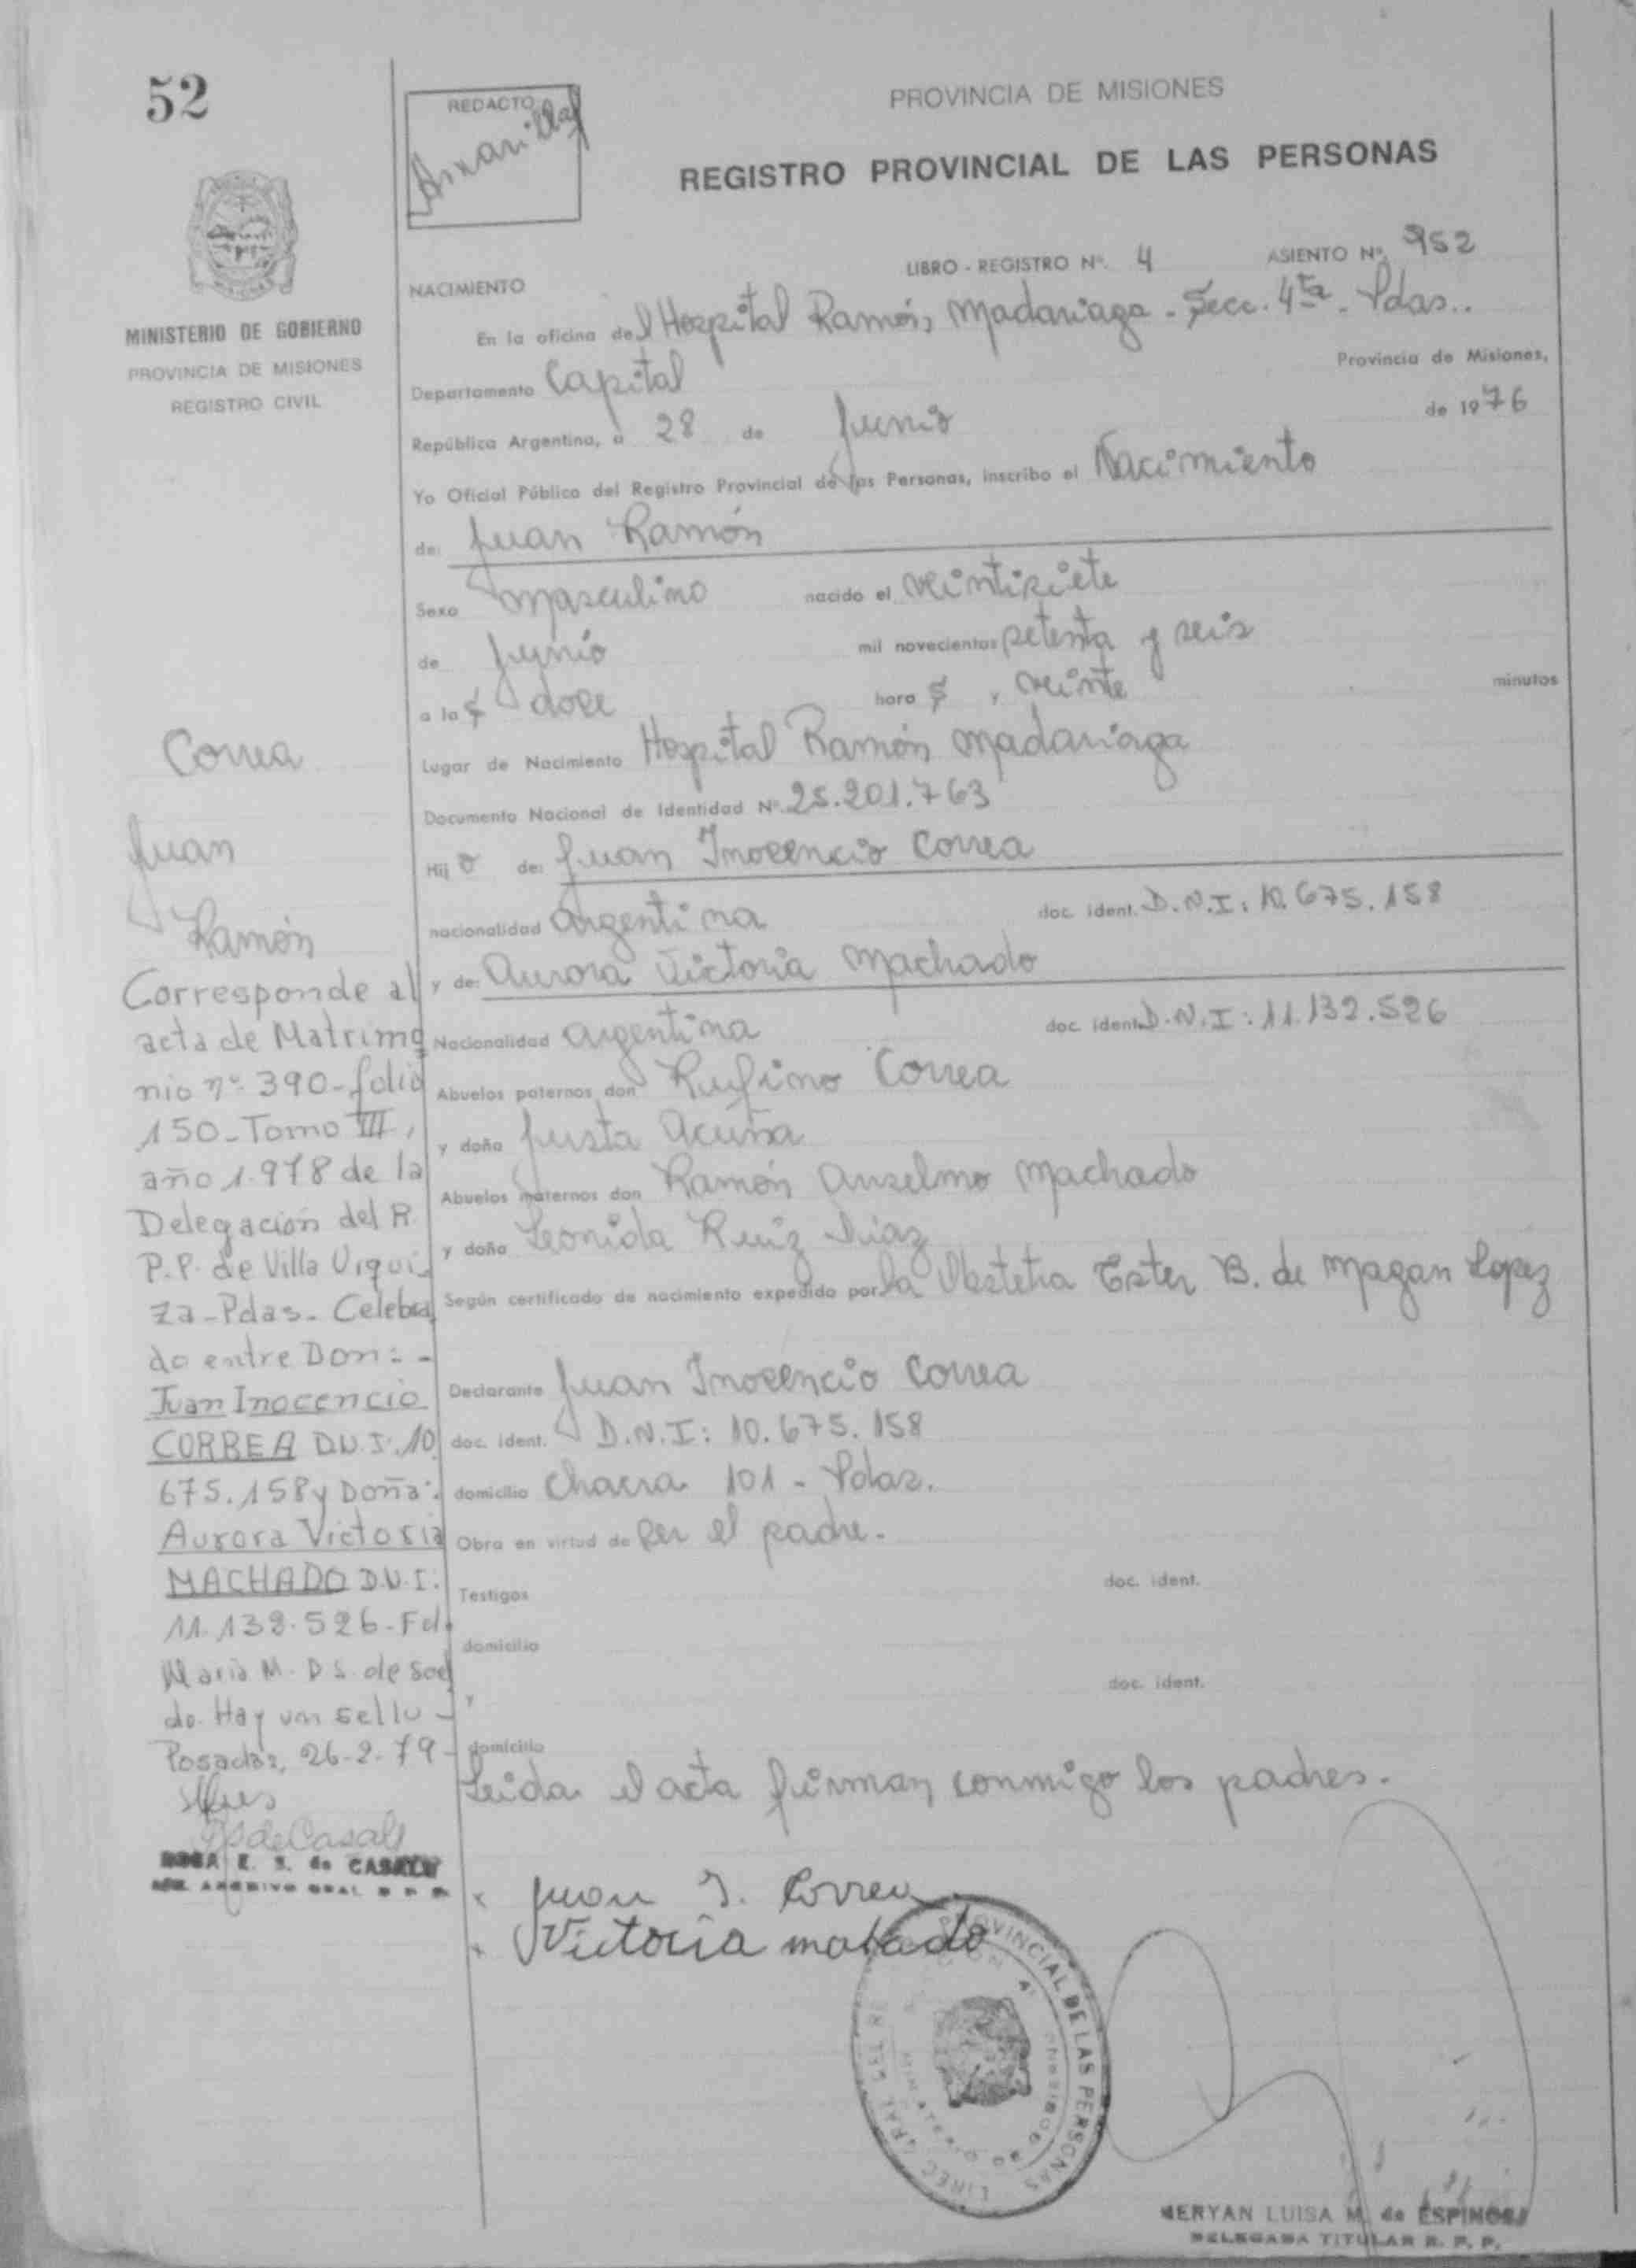 52
REDACTO
PROVINCIA DE MISIONES
REGISTRO PROVINCIAL DE LAS PERSONAS
MINISTERIO DE GOBIERNO
PROVINCIA DE MISIONES
REGISTRO CIVIL
LIBRO - REGISTRO Nº. 4 ASIENTO Nº. 952
NACIMIENTO
En la oficina del Hospital Ramón Madariaga - Secc. 4ta - Pdas..
Departamento Capital Provincia de Misiones,
República Argentina, a 28 de Junio de 1976
Yo Oficial Público del Registro Provincial de las Personas, inscribo el Nacimiento
de: Juan Ramón
Sexo masculino nacido el veintisiete
de Junio mil novecientos setenta y seis
a las doce horas y veinte minutos
Lugar de Nacimiento Hospital Ramón Madariaga
Documento Nacional de Identidad Nº. 25.201.763
Hijo de: Juan Inocencio Correa
nacionalidad argentina doc. ident. D.N.I: 10.675.158
y de: Aurora Victoria Machado
Nacionalidad argentina doc. ident. D.N.I: 11.132.526
Abuelos paternos don Rufino Correa
y doña Justa Acuña
Abuelos maternos don Ramón Anselmo Machado
y doña Leonida Ruiz Diaz
Según certificado de nacimiento expedido por la Obstetra Ester B. de Magan Lopez
Declarante Juan Inocencio Correa
doc. ident. D.N.I: 10.675.158
domicilio Chacra 101 - Pdas.
Obra en virtud de ser el padre.
Testigos doc. ident.
domicilio
y doc. ident.
domicilio
Leida el acta firman conmigo los padres.
Juan I. Correa
Victoria machado
Correa
Juan
Ramón
Corresponde al
acta de Matrimo
nio nº 390-folio
150-Tomo III,
año 1.978 de la
Delegación del R.
P.P. de Villa Urqui-
za-Pdas- Celebra
do entre Don: -
Juan Inocencio
CORREA D.N.I. 10
675.158 y Doña:
Aurora Victoria
MACHADO D.N.I.
11.132.526-Fdo
Maria M. D S. de
do. Hay un sello -
Posadas, 26-2-79-
de Casals
E. S. de CASALS
PROVINCIAL DE LAS PERSONAS
MERYAN LUISA M. de ESPINOSA
DELEGADA TITULAR R. P. P.